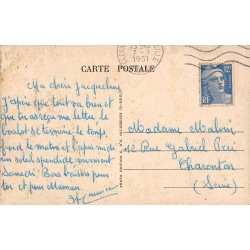 CARTE POSTALE
1951
RF
Ma chère Jacqueline
J'espère que tout va bien et
que tu as reçu ma lettre. Le
boulot se termine, le temps,
froid le matin et l'après midi un
soleil splendide, vivement
Samedi. Bons baisers pour
toi et pour Maman.
Madame Malvini
12 Rue Gabriel Peri
Charenton
(Seine)